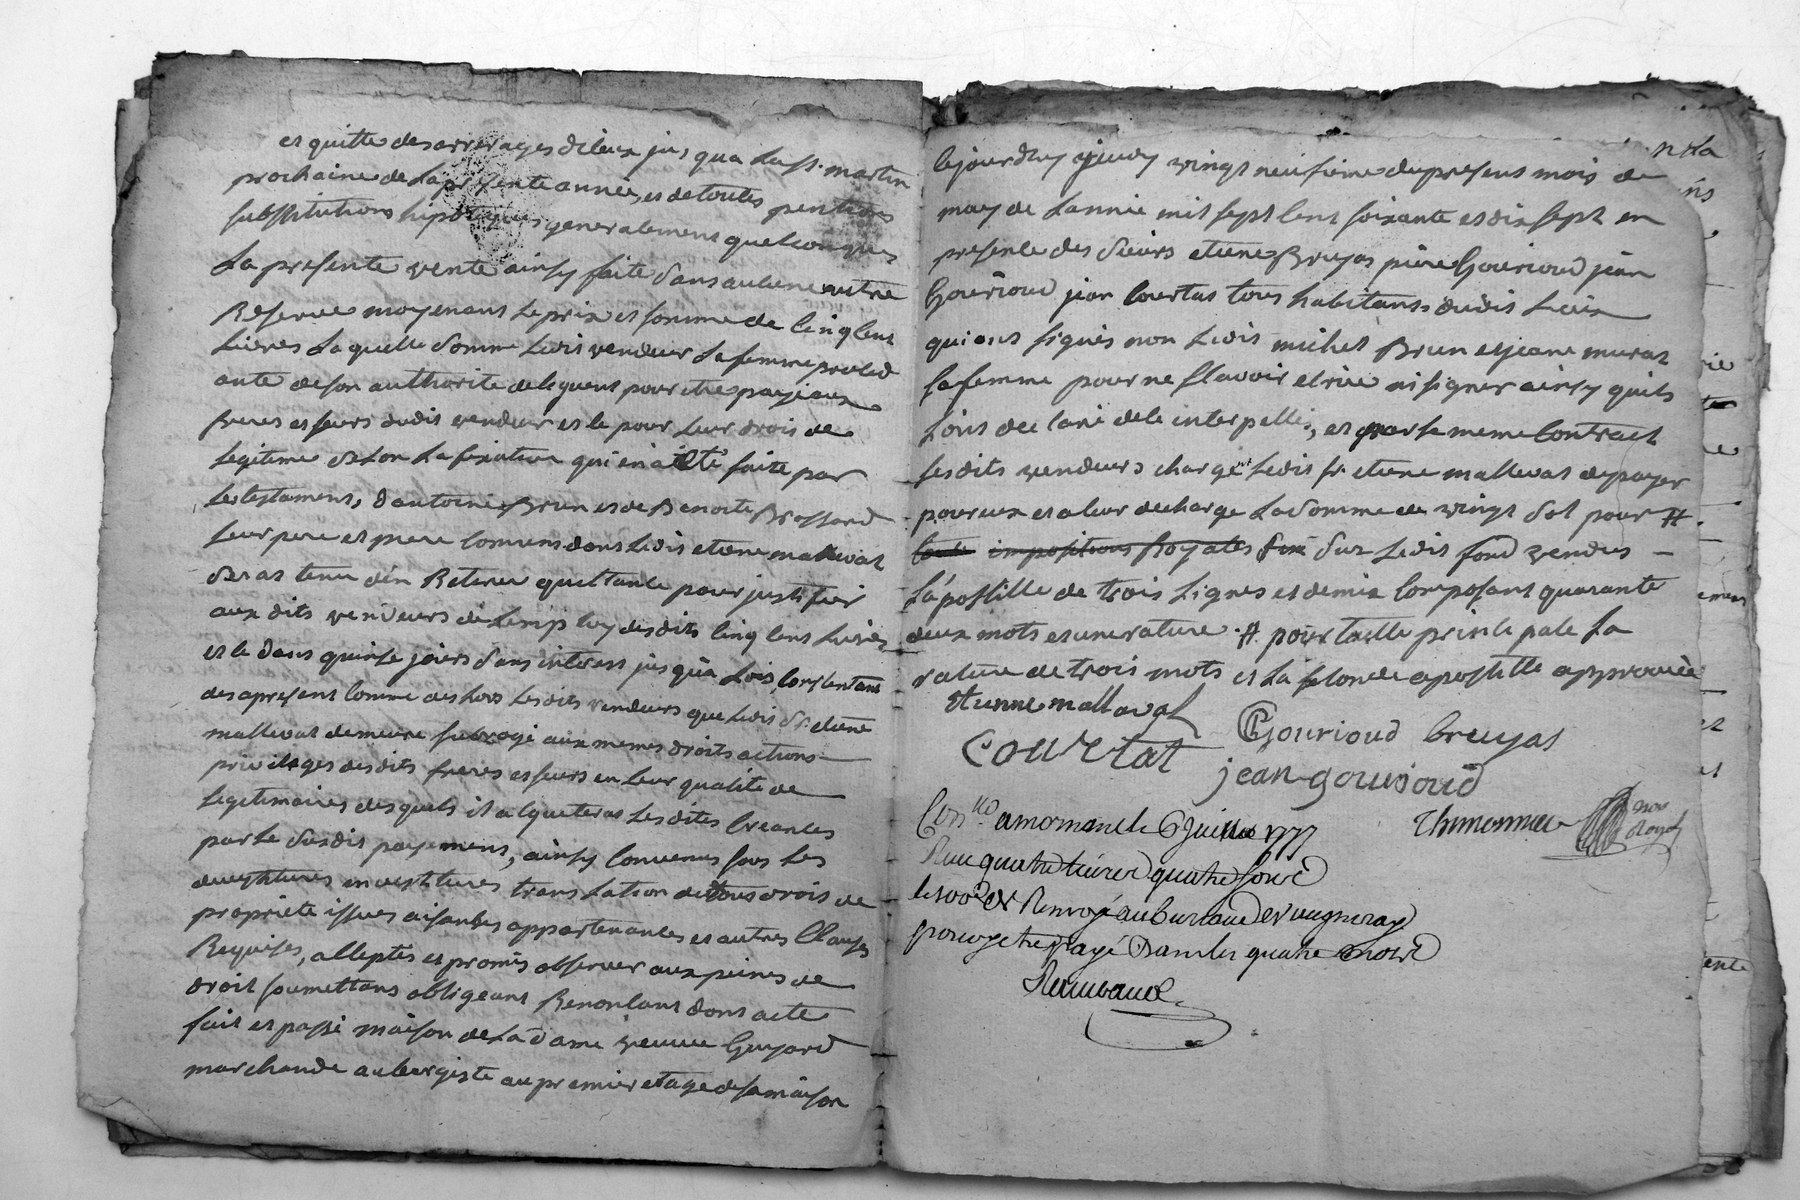 et quitte des arrerages d'iceux jus qua La st. martin
prochaine de La presente année, et de toutes pentions
substitutions hipoteques generalement quelconques
La presente vente ainsy faite sans aucune autre
Reserve moyenant Le prix et somme de Cinq Cent
Livres Laquelle somme Ledit vendeur La femme proced
ante de son authorité deleguent pour etre payé aux
freres et seurs dudit vendeur et le pour Leur droit de
Legitime selon La fixation qui en a eté faite par
Les testaments, d'antoine Brun et de Benoite Brossard
Leur pere et mere Comuns dont Ledit etiene mallevat
seras tenu d'en Retirer quittance pour justifier
aux dits vendeurs de L'employ desdits Cinq Cent Livres
et le dans quinse jours sans interest jusqu'a Lois, Consentant
des apresent Comme des Lors Lesdits vendeurs que Ledit sr. etiene
mallevat demeure subrogé aux memes droits actions
privileges desdits freres et seurs en leur qualité de
Legitimaires desquels il acqueteras Lesdites Creances
par Le susdit payement, ainsy Convenus sous Les
devestitures investitures translation de tous droits de
proprieté issues aisances appartenances et autres Clauses
Requises, acceptés et promis observer aux peines de
droit soumettant obligeant Renonçant dont acte
fait et passé maison de La dame veuve Guyard
marchande aubergiste au premier etage de sa maison
Cejourdhuy jeudy vingt neufieme du present mois de
may de L'année mil sept cent soixante et dix sept en
presence des sieurs etiene Bruyas pierre Gourioud jean
Gourioud jean Courtat tous habitants dudit Lieu
qui ont signés non Ledit michel Brun et jeane murat
sa femme pour ne sçavoir ecrire ni signer ainsy quils
L'ont declaré de ce interpellé, et par Le meme Contract
Lesdits vendeurs chargent Ledit sr etiene mallevat de payer
pour eux et a leur decharge La somme de vingt sol pour #
toute impositions Royales sur Ledit fond vendus
L'apostille de trois Lignes et demie Composant quarante
deux mots et une rature # pour taille principale La
rature de trois mots et La seconde apostille approuvée
Etienne mallaval
Gourioud bruyas
Courtat
jean gourioud
Con.lle a mornant le 6 Juillet 1777
Thimonnier
nore
Royal
Reçu quatre livres quatre sous
le 100e d. Renvoyé au bureau de vaugneray
pour y etre payé dans les quatre mois